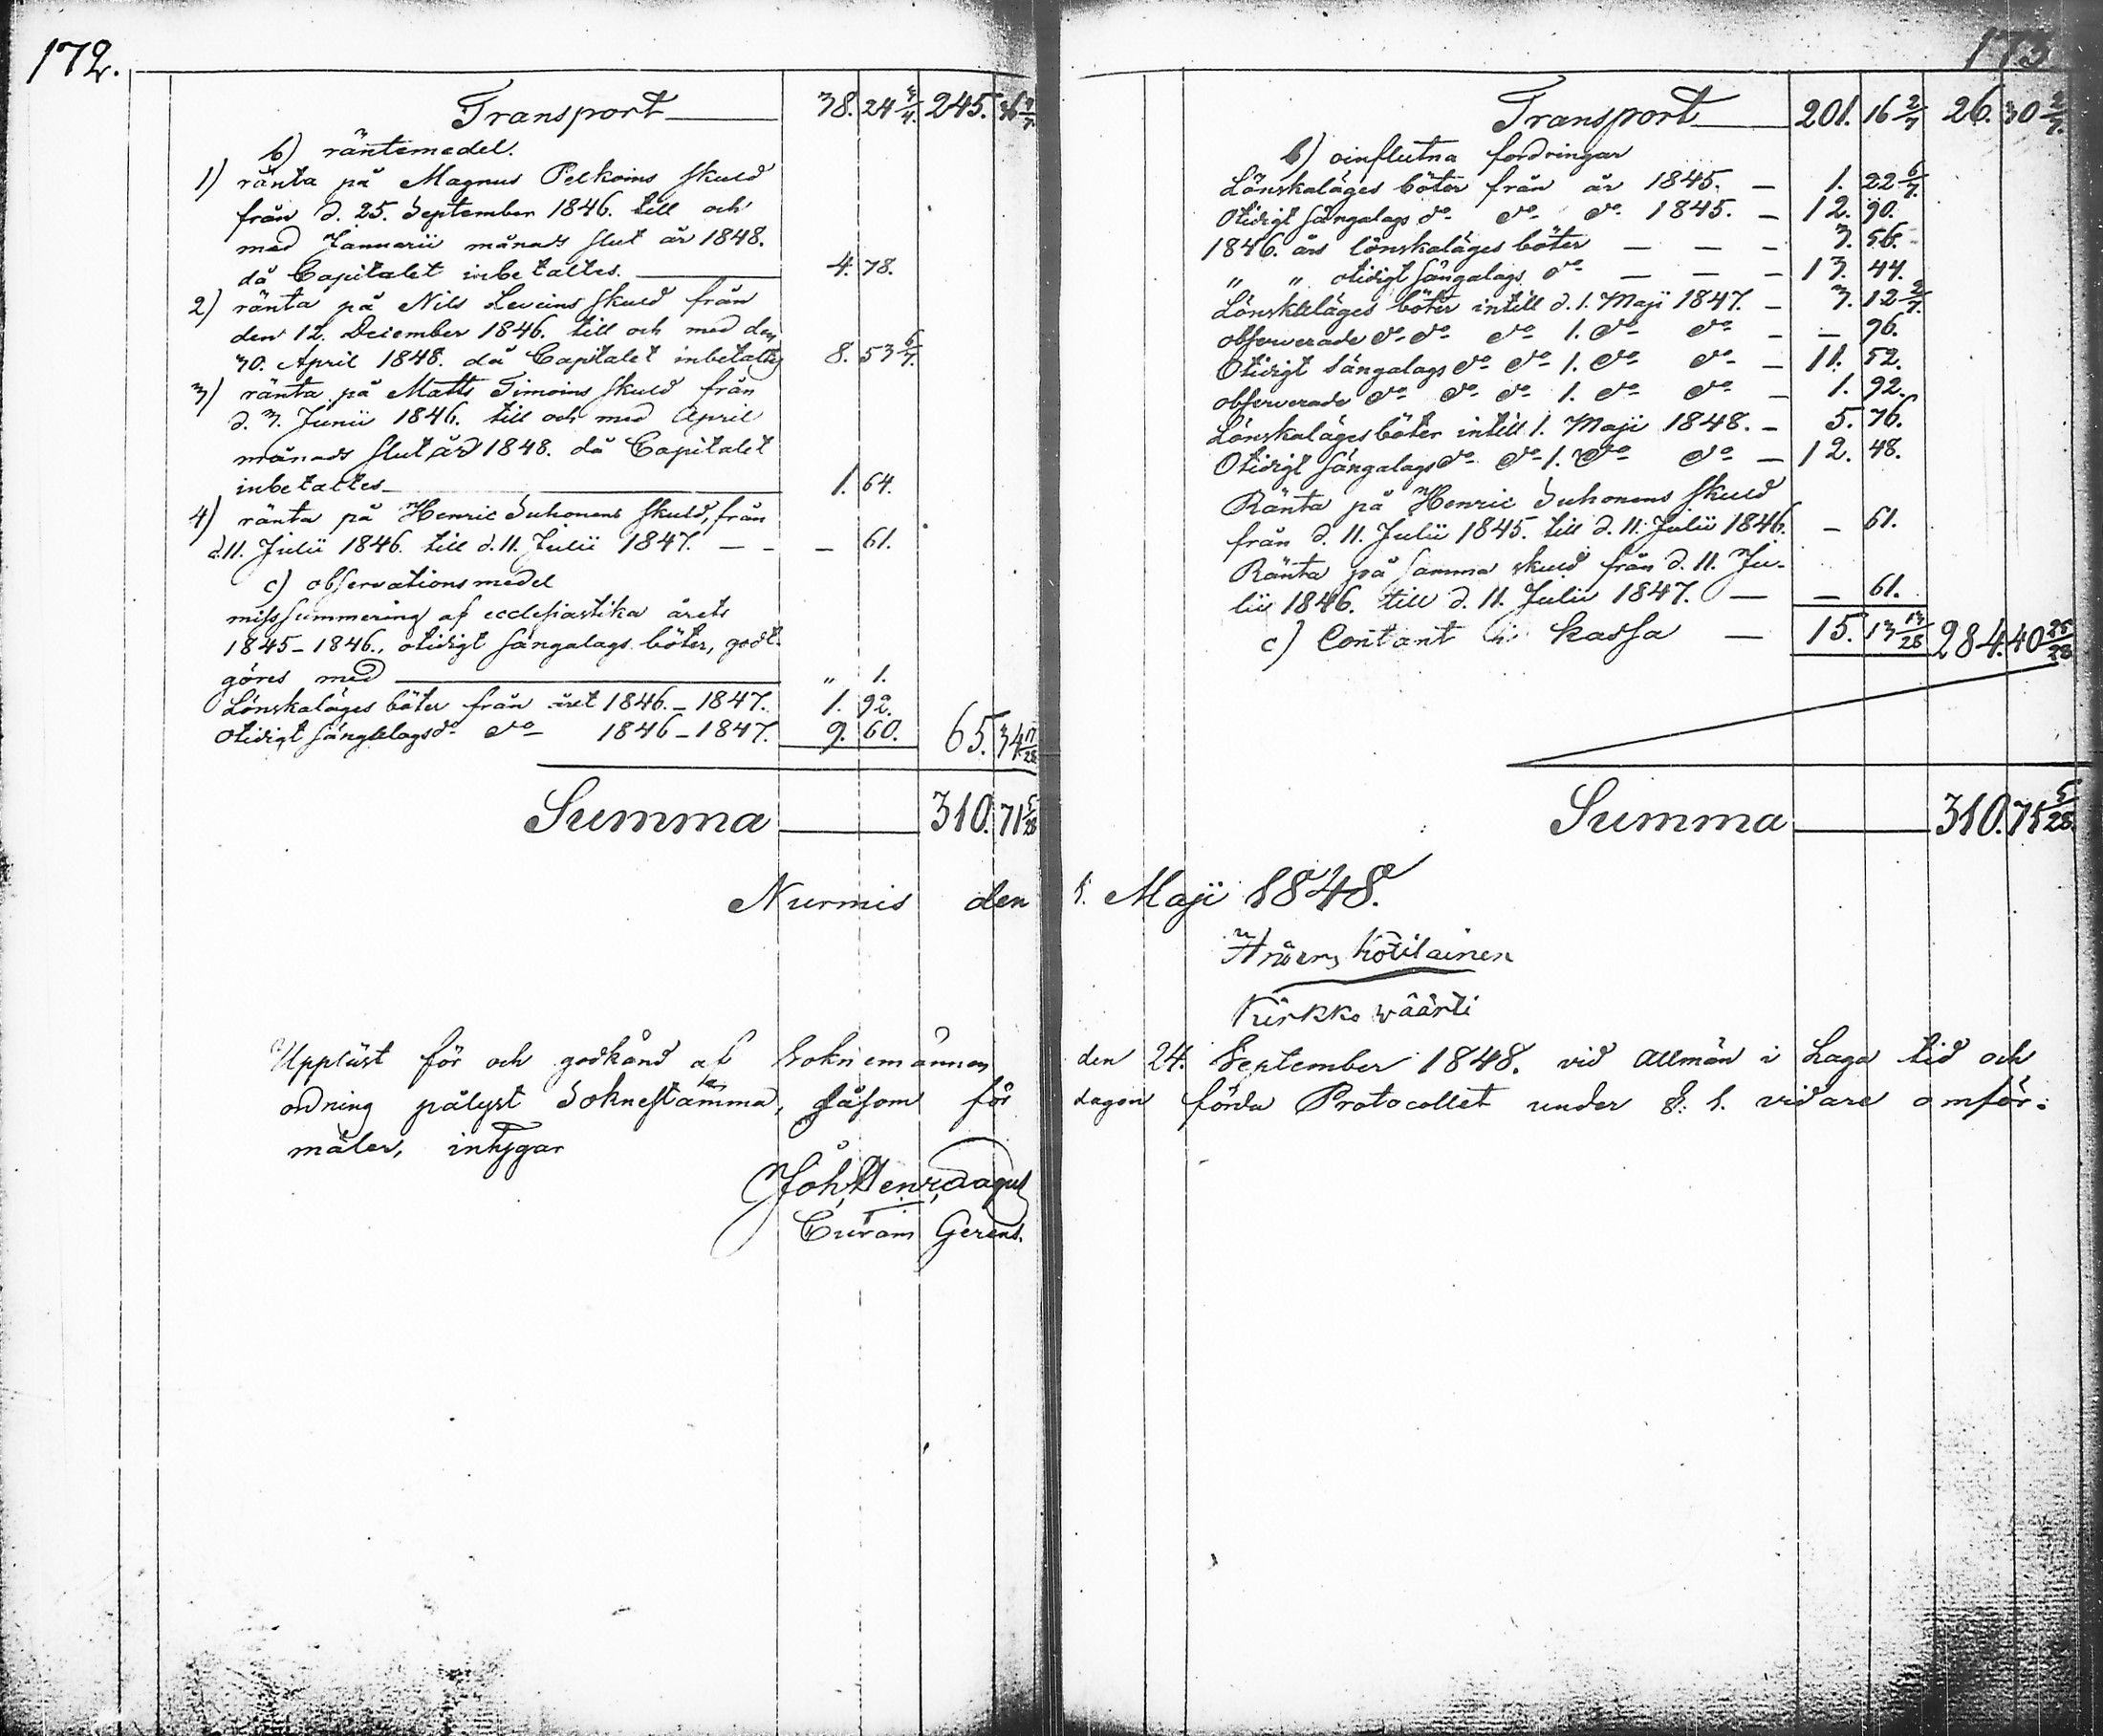 172.
Transport 38. 24 3/4. 245. 36 4/7
b) räntemedel.
1) ränta på Magnus Pelkoins skuld
från d. 25. September 1846. till och
med Januarii månads slut år 1848.
då Capitalet inbetaltes. 4. 78.
2) ränta på Nils Leveins skuld från
den 12. December 1846. till och med den
30. April 1848. då Capitalet inbetaltes 8. 53 6/7.
3) ränta på Matts Timoins skuld från
d. 3. Junii 1846. till och med April
månads slut år 1848. då Capitalet
inbetaltes 1. 64.
4) ränta på Henric Suhonens skuld, från
d. 11. Julii 1846. till d. 11. Julii 1847. — - — 61.
c) observationsmedel
missummering af ecclesiastika årets
1845-1846., otidigt sängalags böter, godt-
göres med „ 1.
Lönskaläges böter från året 1846.-1847. 1. 92.
otidigt sängelags do do 1846-1847. 9. 60. 65. 34 17/28
Summa 310. 71 5/28
Nurmis den
Upplüst för och godkänd af Soknemännen
ordning pålyst Soknestämma, såsom för
mäler, intygar
Joh, Henr,
Curam Gerens.
173
Transport 201. 16 2/7 26. 30 2/7.
b) oinflutna fordringar
Lönskaläges böter från år 1845. — 1. 22 6/7.
Otidigt sängalags do do do 1845. — 12. 90.
1846. års lönskaläges böter — — — 3. 56.
„ „ otidigt sängalags do — — — 13. 44.
Lönskaläges böter intill d. 1. Maji 1847. — 3. 12 2/7.
observerade do do do 1. do do — — 96.
Otidigt sängalags do do 1. do do — 11. 52.
observerade do do do 1. do do — 1. 92.
Lönskaläges böter intill 1. Maji 1848. — 5. 76.
Otidigt sängalags do do 1. do do — 12. 48.
Ränta på Henric Suhonens skuld
från d. 11. Julii 1845. till d. 11. Julii 1846. — 61.
Ränta på samma skuld från d. 11. Ju-
lii 1846. till d. 11. Julii 1847. — — 61.
c) Contant i kassa — 15. 13 13/28 284. 40 25/28
Summa 310. 71 5/28
1. Maji 1848.
Anders Kotilainen
Kirkko väärti
den 24. September 1848. vid allmän i Laga tid och
dagen förda Protocollet under §: 1. vidare omför-